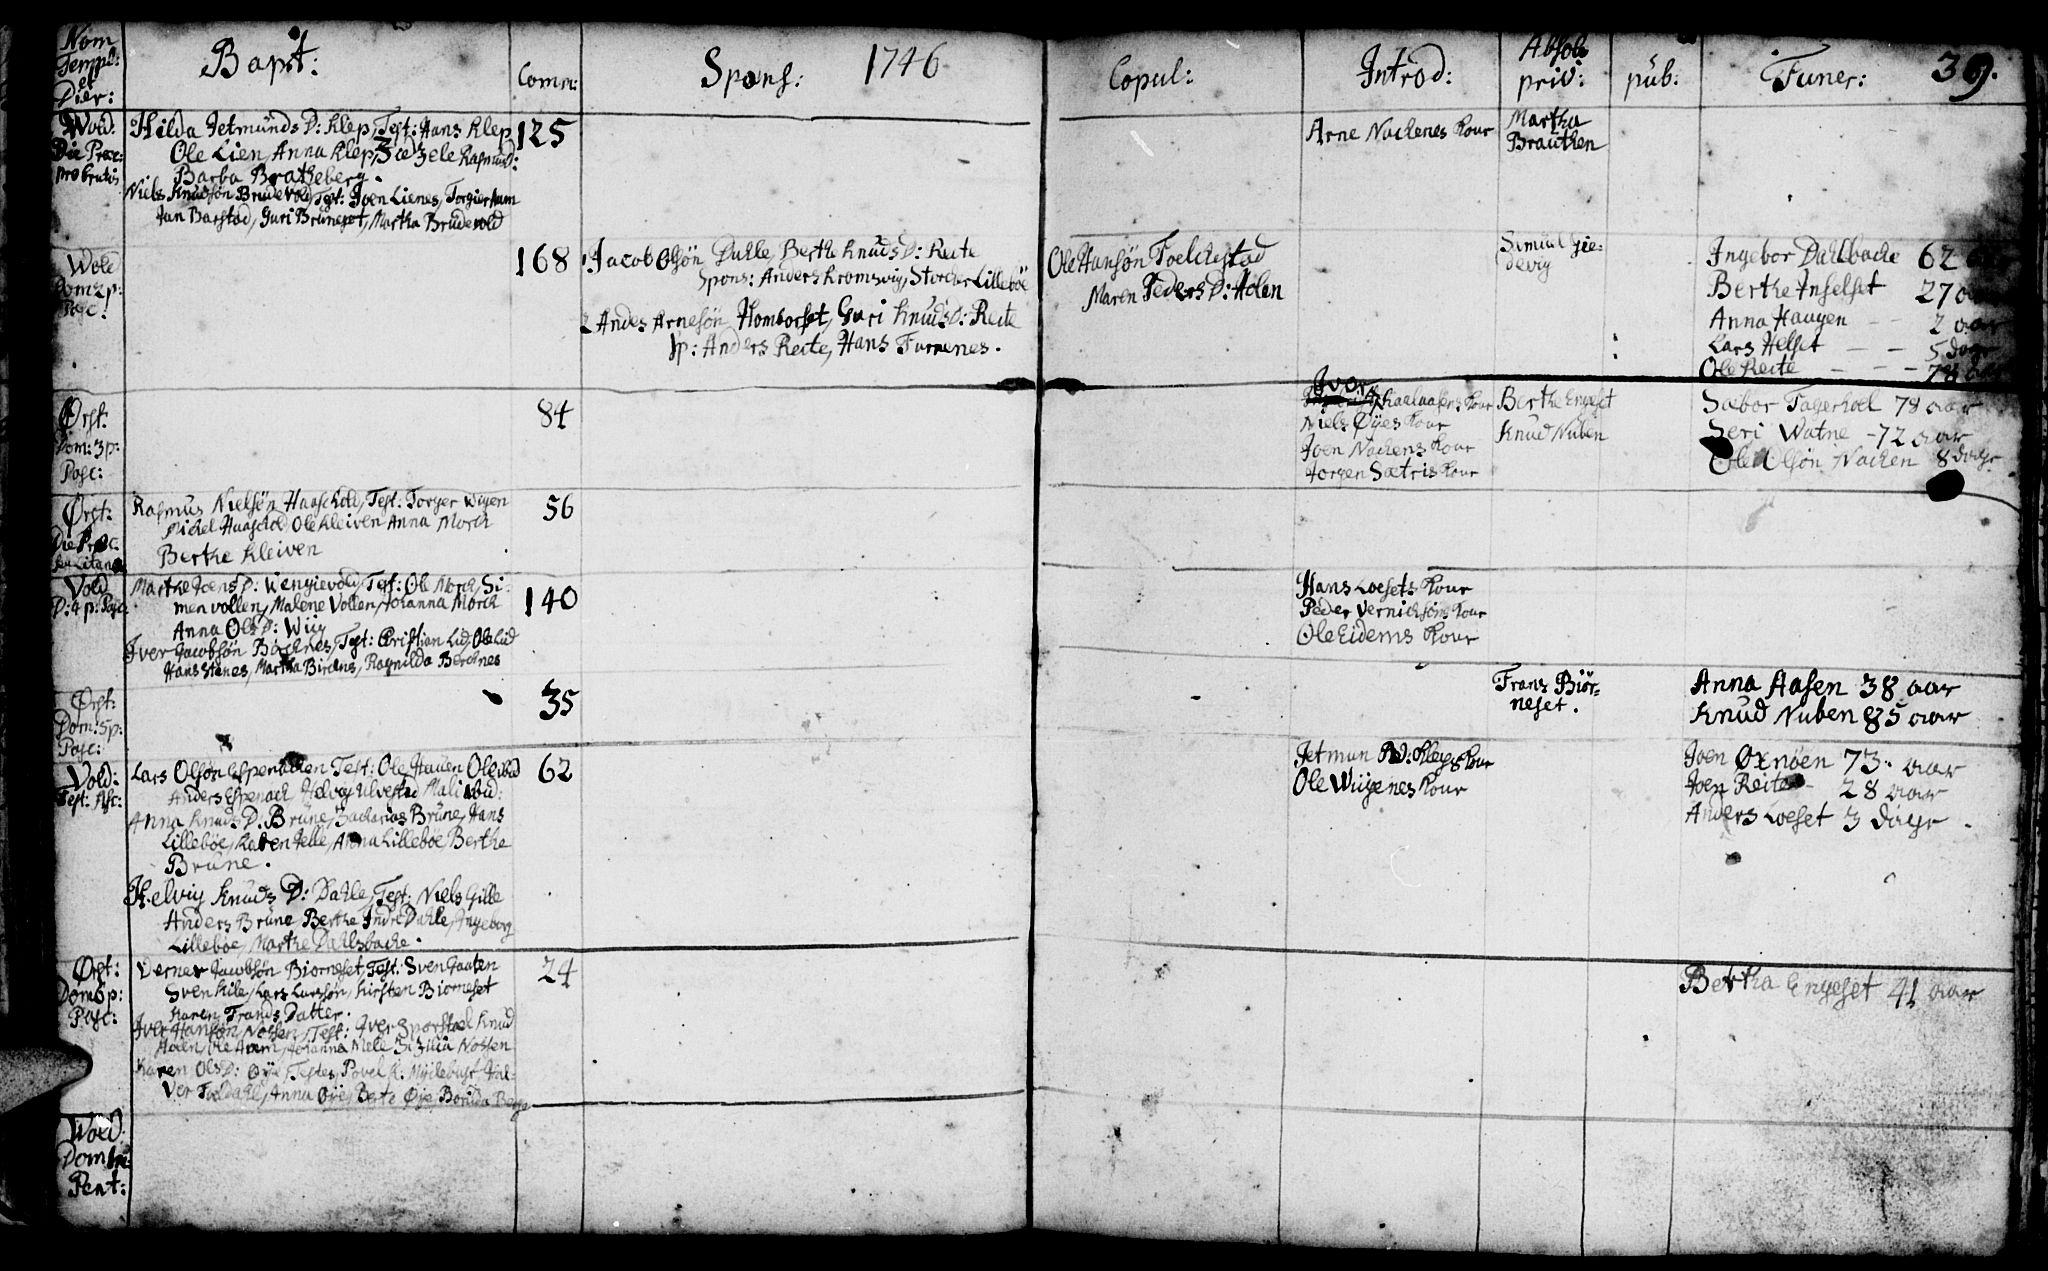 Nom Templ: et Dier:
Bapt:
Comm:
Spons:
1746
Copul:
Introd:
Absol: priv:
pub:
Funer:
39.
Wold.
Die Prec:
Hilda Jetmunds D: Klep, Test: Hans Klep
Ole Lien, Anna Klep, Zidzele Rasmusd:
Barba Bratheberg.
Niels Knudsön Brudevold, Test: Joen Lienes, Torgier Aam
Jan Barstad, Guri Bruneset, Martha Brudevold
125
Arne Nachenes Kone
Martha
Brauthen
Wold
Dom 2 p:
Pasc:
168
1 Jacob Olsön Dahle, Berthe Knuds D: Reite
Spons: Anders Kromsvig, Storcher Lilleböe
2 Anders Arnesön Homborset, Guri Knuds D: Reite
sp: Anders Reite, Hans Furrenes.
Ole Hansön Foelckestad
Maren Peders D: Aolen
Simul Gie-
devig
Ingebor Dahlbache 62
Berthe Inselset 27
Anna Haugen - - 2 aar
Lars Helset - - 5 dage
Ole Reite - - - 78 aar
Ørst:
Dom: 3 p:
Pasc:
84
Iver
Niels Øyes Kone
Joen Nachens Kone
Jorgen Sætris Kone
Berthe Engeset
Knud Nuben
Sæbor Fagerhoel 78 aar
Seri Watne - 72 aar
Ole Olsön Nachen 8 dage
Ørst:
Die Prec:
Rasmus Nielsön Haaschold, Test: Torger Wigen
Michel Haaschold Ole Kleiven Anna Morch
Berthe Kleiven
56
Vold
D: 4 p: Pasc:
Marthe Joens D: Wengievold, Test: Ole Morch, Si-
men Vollen, Malene Vollen, Johanna Morch
Anna Ols D: Wiig
Iver Jacobsön Bachnes, Test: Christian Lid, Ole Lid
Hans Stenes, Martha Birdnes, Ragnilda Berchnes
140
Hans Loesets Kone
Peder Vernichsöns Kone
Ole Eidems Kone
Ørst:
Dom: 5 p:
Pasc:
35
Frans Biör-
neset.
Anna Aasen 38 aar
Knud Nuben 85 aar
Vold:
Fest: Asc:
Lars Olsön Espenachen Test: Ole Hauen Ole ibid
Anders Espenach Helvig Ulvestad Mali ibid:
Anna Knuds D. Brüne, Zacharias Brüne, Hans
Lilleböe, Karen Helle, Anna Lilleböe Berthe
Brüne.
Helvig Knuds D: Dahle, Test: Niels Gille
Anders Brüne Berthe Indre Dahle, Ingeborg
Lilleböe, Marthe Dahlsbache.
62
Jetmun Kleps Kone
Ole Wiigenes Kone
Joen Oxnöen 73. aar
Joen Reite - 28 aar
Anders Loeset 3 dage.
Ørst:
Dom 6 p:
Pasc:
Verner Jacobsön Biorneset, Test: Sven Gaaten
Sven Hile, Lars Larssön, Kirsten Biorneset
Karen Frands Datter.
Iver Hansön Nossen, Test: Iver Sporstoel Knud
Aolen, Ole Aam, Johanna Mele Sizilia Nossen
Karen Ols D: Øye, Testes, Povel K: Myklebust Hal-
ver Foeldahl, Anna Øye, Berte Øye, Borilda Berge
24
Bertha Engeset 41 aar
Wold
Dom
Pent: